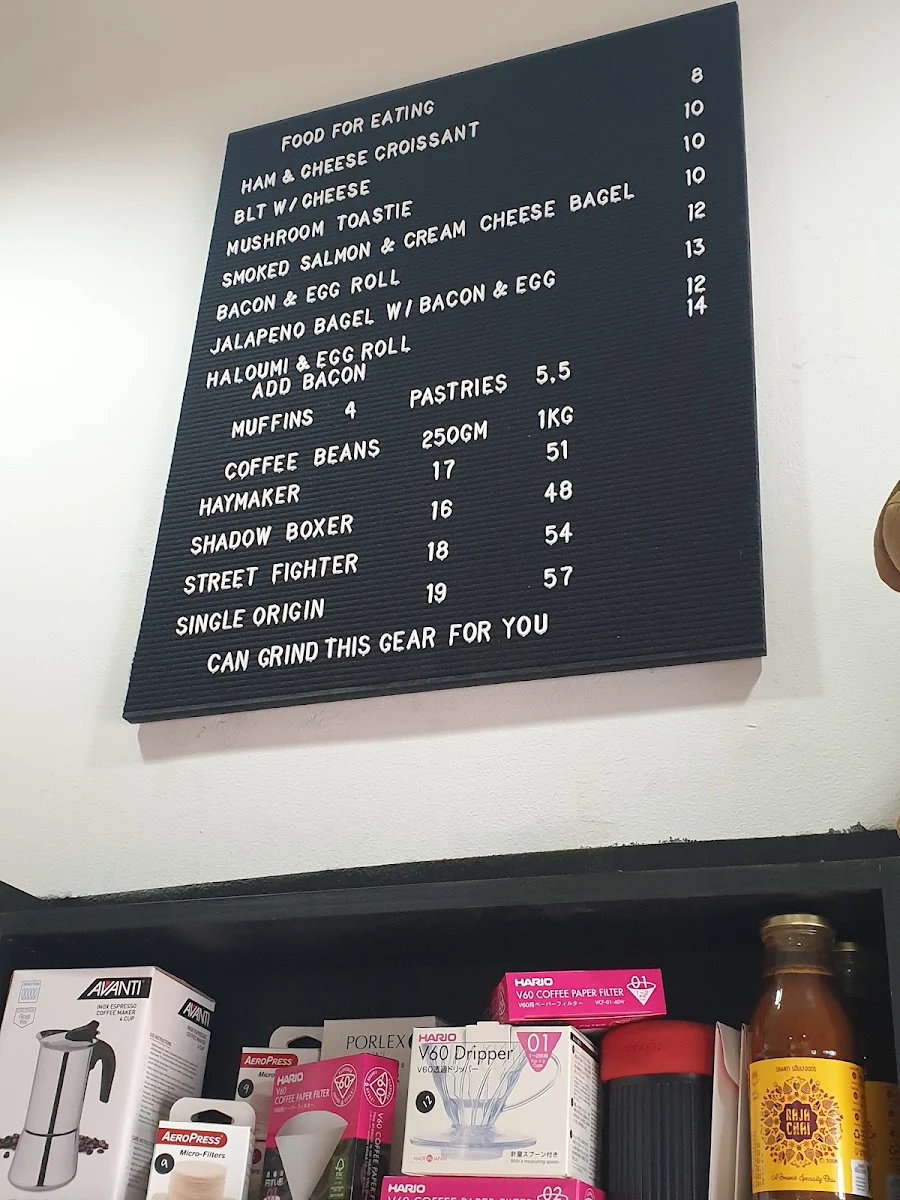 FOOD FOR EATING
HAM & CHEESE CROISSANT 8
BLT W/ CHEESE 10
MUSHROOM TOASTIE 10
SMOKED SALMON & CREAM CHEESE BAGEL 10
BACON & EGG ROLL 12
JALAPENO BAGEL W/ BACON & EGG 13
HALOUMI & EGG ROLL 12
ADD BACON 14
MUFFINS 4 PASTRIES 5.5
COFFEE BEANS 250GM 1KG
HAYMAKER 17 51
SHADOW BOXER 16 48
STREET FIGHTER 18 54
SINGLE ORIGIN 19 57
CAN GRIND THIS GEAR FOR YOU
AVANTI
INOX ESPRESSO
COFFEE MAKER
4 CUP
AVANTI
AEROPRESS
Micro
9
AEROPRESS
Micro-Filters
9
PORLEX
HARIO
V60
COFFEE PAPER FILTER
V60
HARIO
V60 COFFEE PAPER FILTER
VCF-01-40W
01
HARIO
V60 Dripper
V60透過ドリッパー
01
12
MADE IN JAPAN
計量スプーン付き
With a measuring spoon
HARIO
V60 COFFEE PAPER FILTER
02
SHANTI SOULFOODS
RAJA
CHAI